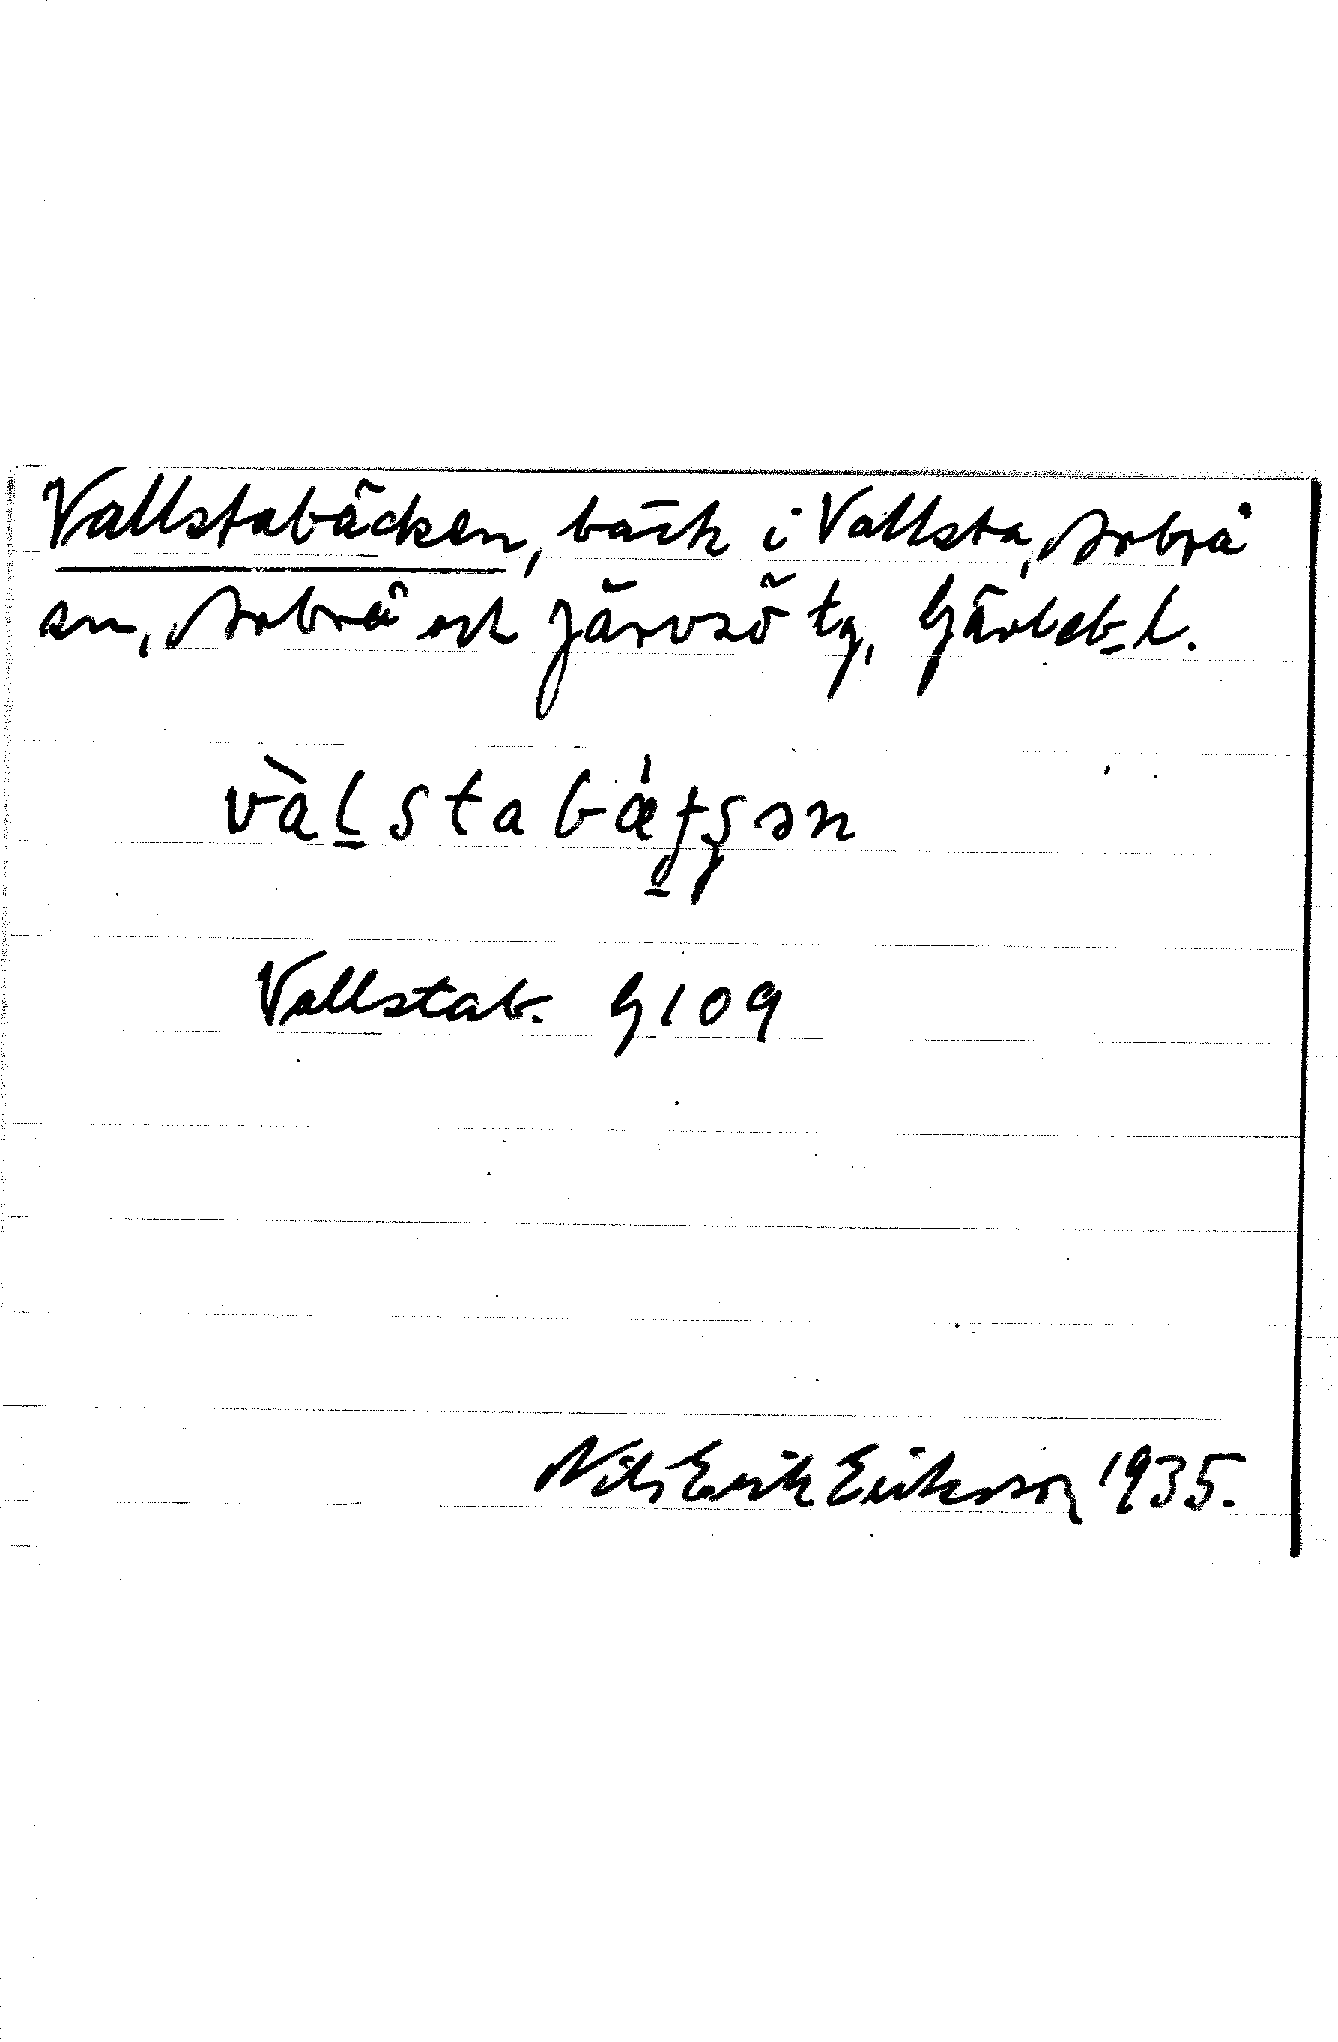 Vallstabäcken, bäck i Vallsta, Arbrå
sn, Arbrå och Järvsö tg, Gävleb. l.
Vallstab. G109
Nils Erik Eriksson 1935.